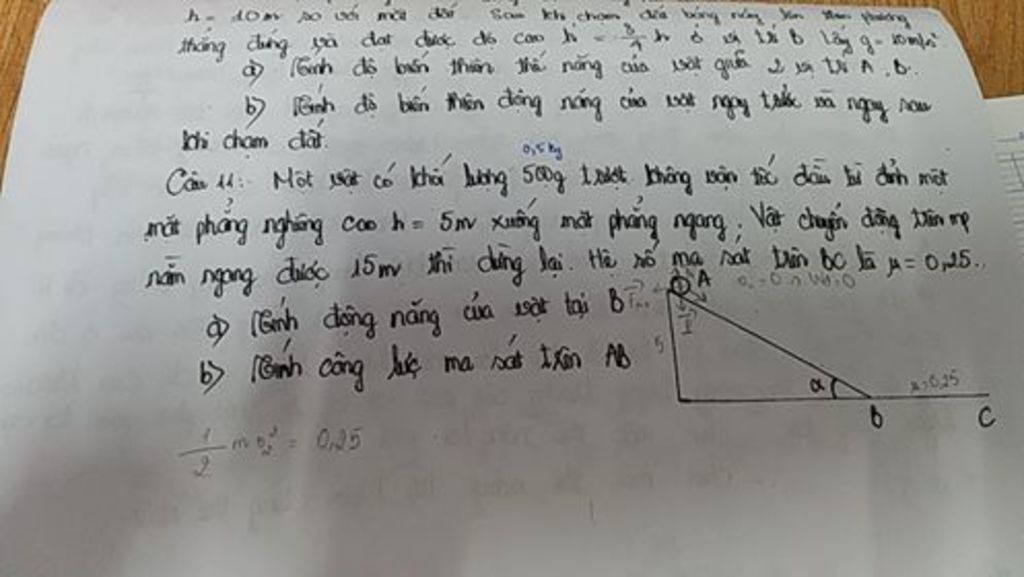 h = 10m so với mặt đất. Sau khi chạm đất bóng nảy lên theo phương
thẳng đứng và đạt được độ cao h = 3/4 h ở vị trí B lấy g = 10m/s²
a) Tính độ biến thiên thế năng của vật giữa 2 vị trí A, B.
b) Tính độ biến thiên động năng của vật ngay trước và ngay sau
khi chạm đất.
0,5kg
Câu 11: Một vật có khối lượng 500g trượt không vận tốc đầu từ đỉnh một
mặt phẳng nghiêng cao h = 5m xuống mặt phẳng ngang. Vật chuyển động trên mp
nằm ngang được 15m thì dừng lại. Hệ số ma sát trên BC là μ = 0,25.
a) Tính động năng của vật tại B
b) Tính công lực ma sát trên AB
A
5
α
μ=0,25
B
C
1/2 m v₂² = 0,25